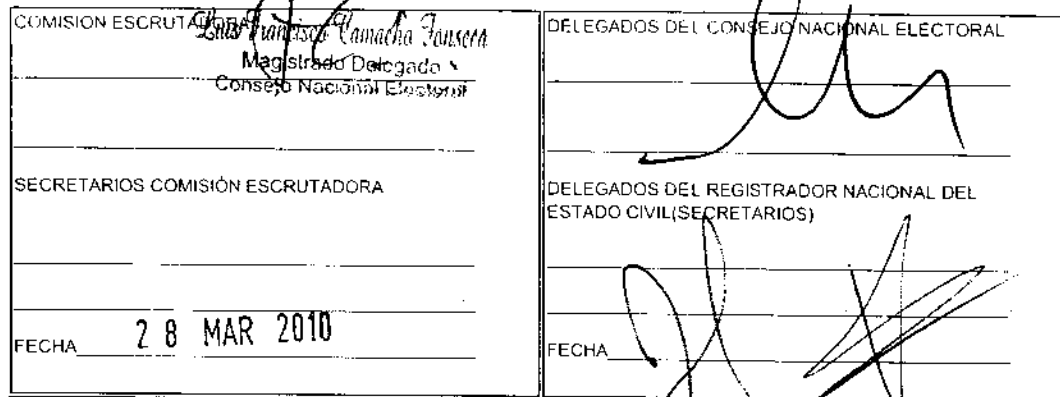 COMISION ESCRUTADORA
Luis Francisco Camacho Fonseca
Magistrado Delegado
Consejo Nacional Electoral
SECRETARIOS COMISIÓN ESCRUTADORA
28 MAR 2010
FECHA
DELEGADOS DEL CONSEJO NACIONAL ELECTORAL
DELEGADOS DEL REGISTRADOR NACIONAL DEL
ESTADO CIVIL(SECRETARIOS)
FECHA